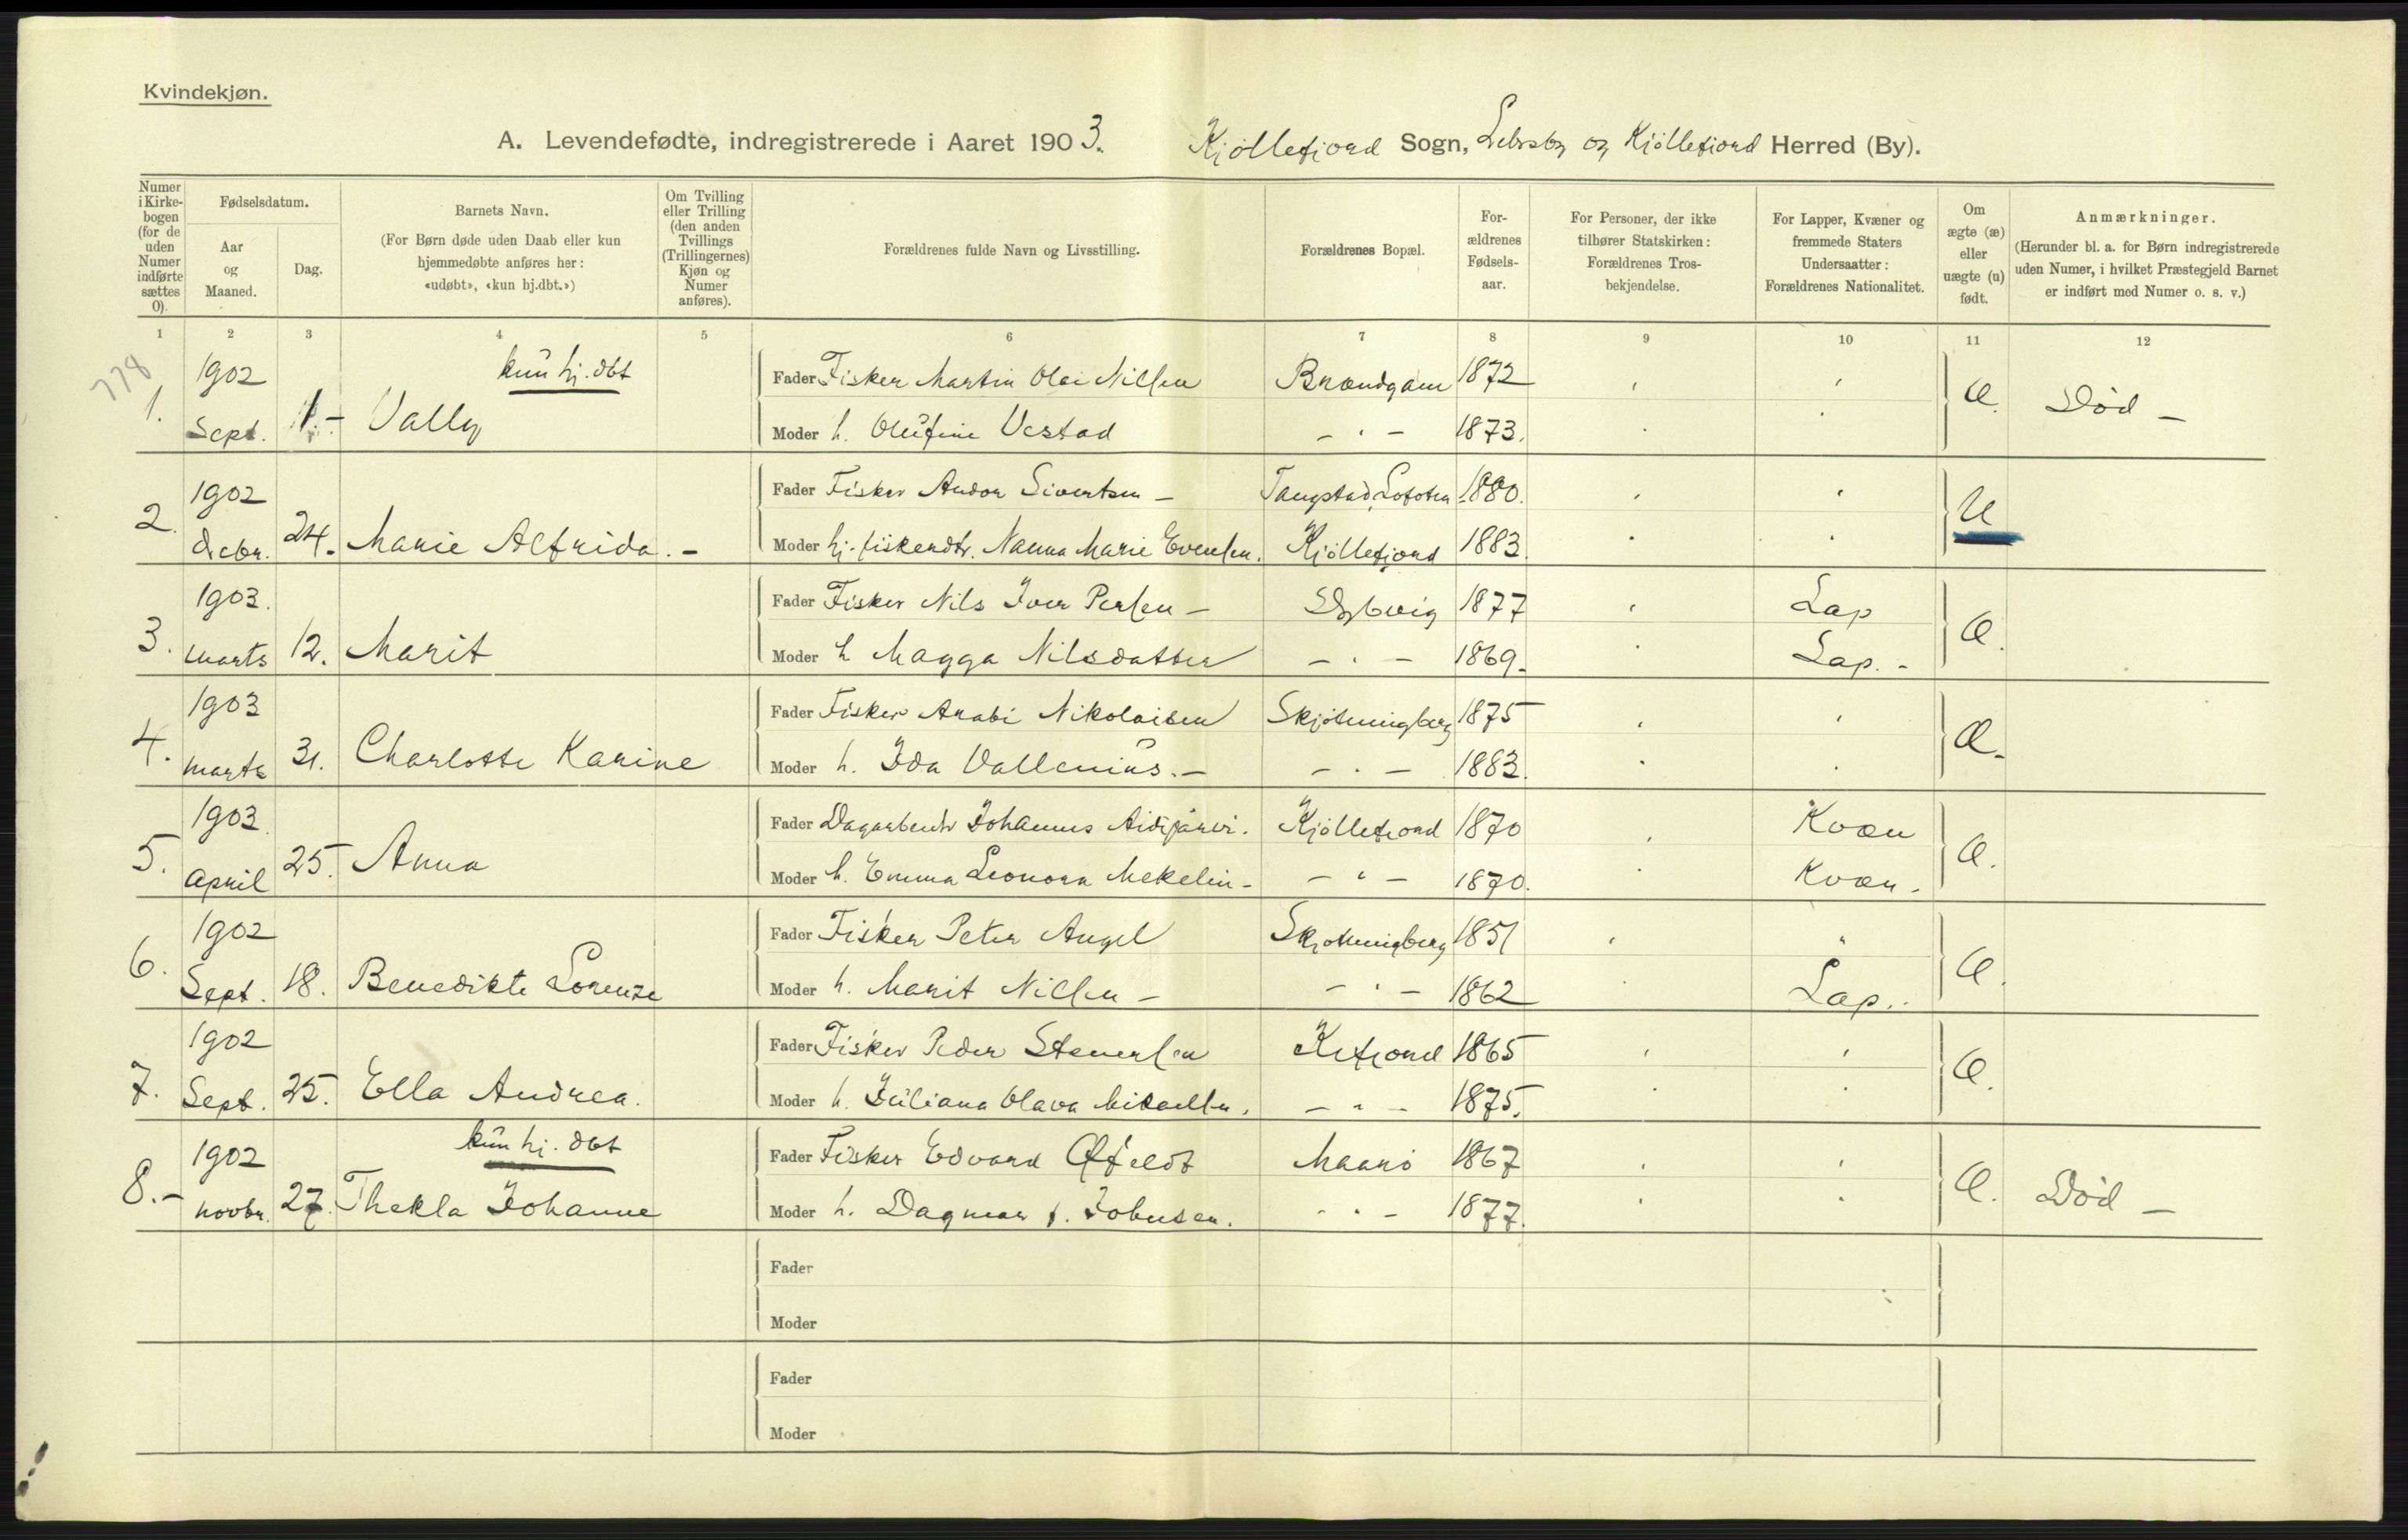 Kvindekjøn.
A. Levendefødte, indregistrerede i Aaret 1903. Kjøllefjord Sogn, Lebesby og Kjøllefjord Herred (By).
Numer i Kirkebogen (for de uden Numer indførte sættes 0).
Fødselsdatum.
Aar og Maaned.
Dag.
Barnets Navn.
(For Børn døde uden Daab eller kun hjemmedøbte anføres her: «udøbt», «kun hj.dbt.»)
Om Tvilling eller Trilling (den anden Tvillings (Trillingernes) Kjøn og Numer anføres).
Forældrenes fulde Navn og Livsstilling.
Forældrenes Bopæl.
Forældrenes Fødselsaar.
For Personer, der ikke tilhører Statskirken: Forældrenes Trosbekjendelse.
For Lapper, Kvæner og fremmede Staters Undersaatter: Forældrenes Nationalitet.
Om ægte (æ) eller uægte (u) født.
Anmærkninger.
(Herunder bl. a. for Børn indregistrerede uden Numer, i hvilket Præstegjeld Barnet er indført med Numer o. s. v.)
1 2 3 4 5 6 7 8 9 10 11 12
778
1902 kun hj. dbt Fader Fisker Martin Olai Nilsen Brændgam 1872
1. Sept. 1.- Vally Moder h. Olufine Vestad - " - 1873. Æ. Død -
1902 Fader Fisker Andor Sivertsen - Tangstad, Lofoten 1880.
2. Decbr. 24. Marie Alfrida. - Moder hj. fiskerdtr. Nanna Marie Evensen. Kjøllefjord 1883. U
1903. Fader Fisker Nils Iver Persen - Dybvig 1877 Lap
3. Marts 12. Marit Moder h Magga Nilsdatter - " - 1869. Lap. - Æ.
1903 Fader Fisker Anabi Nikolaisen Skjøtningberg 1875
4. Marts 31. Charlotte Karine Moder h. Ida Vallenius. - - " - 1883. Æ.
1903. Fader Dagarbeidr Johannes Aidijärvi. Kjøllefjord 1870 Kvæn
5. April 25. Anna Moder h. Emma Leonora Mekelin - - " - 1870. Kvæn. Æ.
1902 Fader Fisker Peter Angel Skjøtningberg 1851 "
6. Sept. 18. Benedikte Lorenze Moder h. Marit Nilsen - - " - 1862 Lap. Æ.
1902 Fader Fisker Peder Stenersen Kefjord 1865
7. Sept. 25. Ella Andrea. Moder h. Juliana Olava Mikaelsen. - " - 1875. Æ.
1902 kun hj. dbt Fader Fisker Edvard Øfeldt Maarø 1867
8.- Novbr. 27. Thekla Johanne Moder h. Dagmar f. Johnsen. - " - 1877. Æ. Død -
Fader
Moder
Fader
Moder